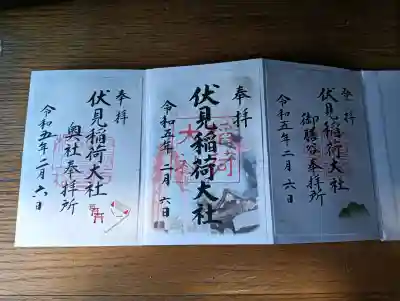 奉拝
伏見稲荷大社
御膳谷奉拝所
令和五年二月六日
奉拝
伏見稲荷大社
令和五年二月六日
奉拝
伏見稲荷大社
奥社奉拝所
令和五年二月六日